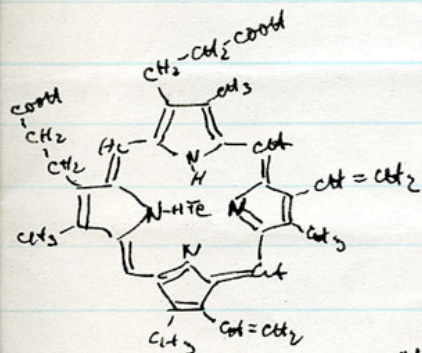 CH2 - CH2 COOH
COOH
CH2
CH2
CH3
HC
N
H
CH
CH = CH2
N-H Fe N
CH3
CH3
N
CH
CH3 CH=CH2